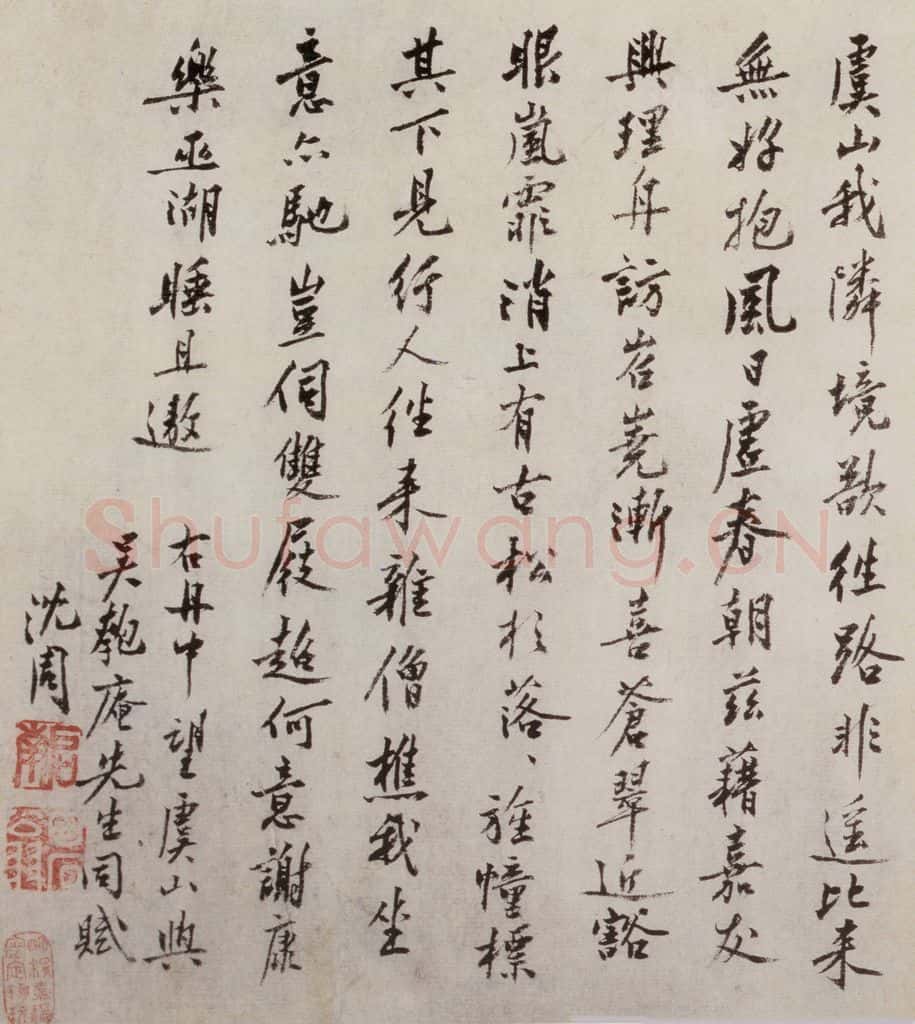 虞山我隣境歆往路非遥比来
無好抱風日虛春朝茲藉嘉友
興理舟訪岧嶤漸喜蒼翠近豁
眼嵐霏消上有古松杉落、旌幢標
其下見行人往来雜僧樵我坐
意亦馳豈伺雙屐超何意謝康
樂巫湖睡且遨
右舟中望虞山與
吴匏庵先生同賦
沈周
啓南
白石翁
Shufawang.CN